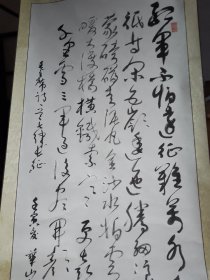 红军不怕远征难万水
只等闲五岭逶迤腾细浪
蒙磅礴走泥丸金沙水拍云
暖大渡桥横铁索寒更喜
千里雪三军过后尽开颜
毛主席诗七律长征